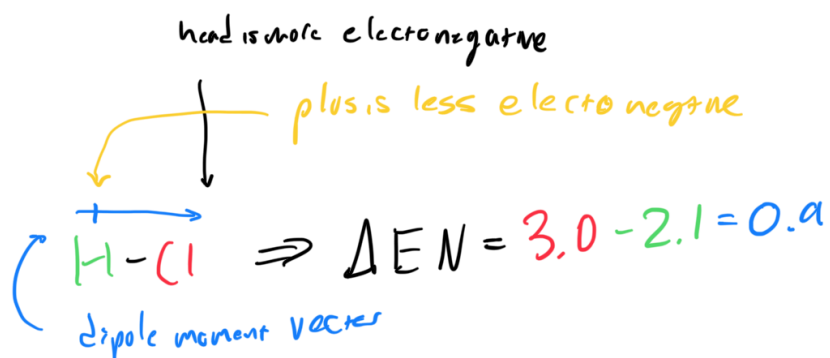 head is more electronegative
plus is less electo negtive
H-Cl ⇒ ΔEN = 3.0 - 2.1 = 0.9
dipole moment vector